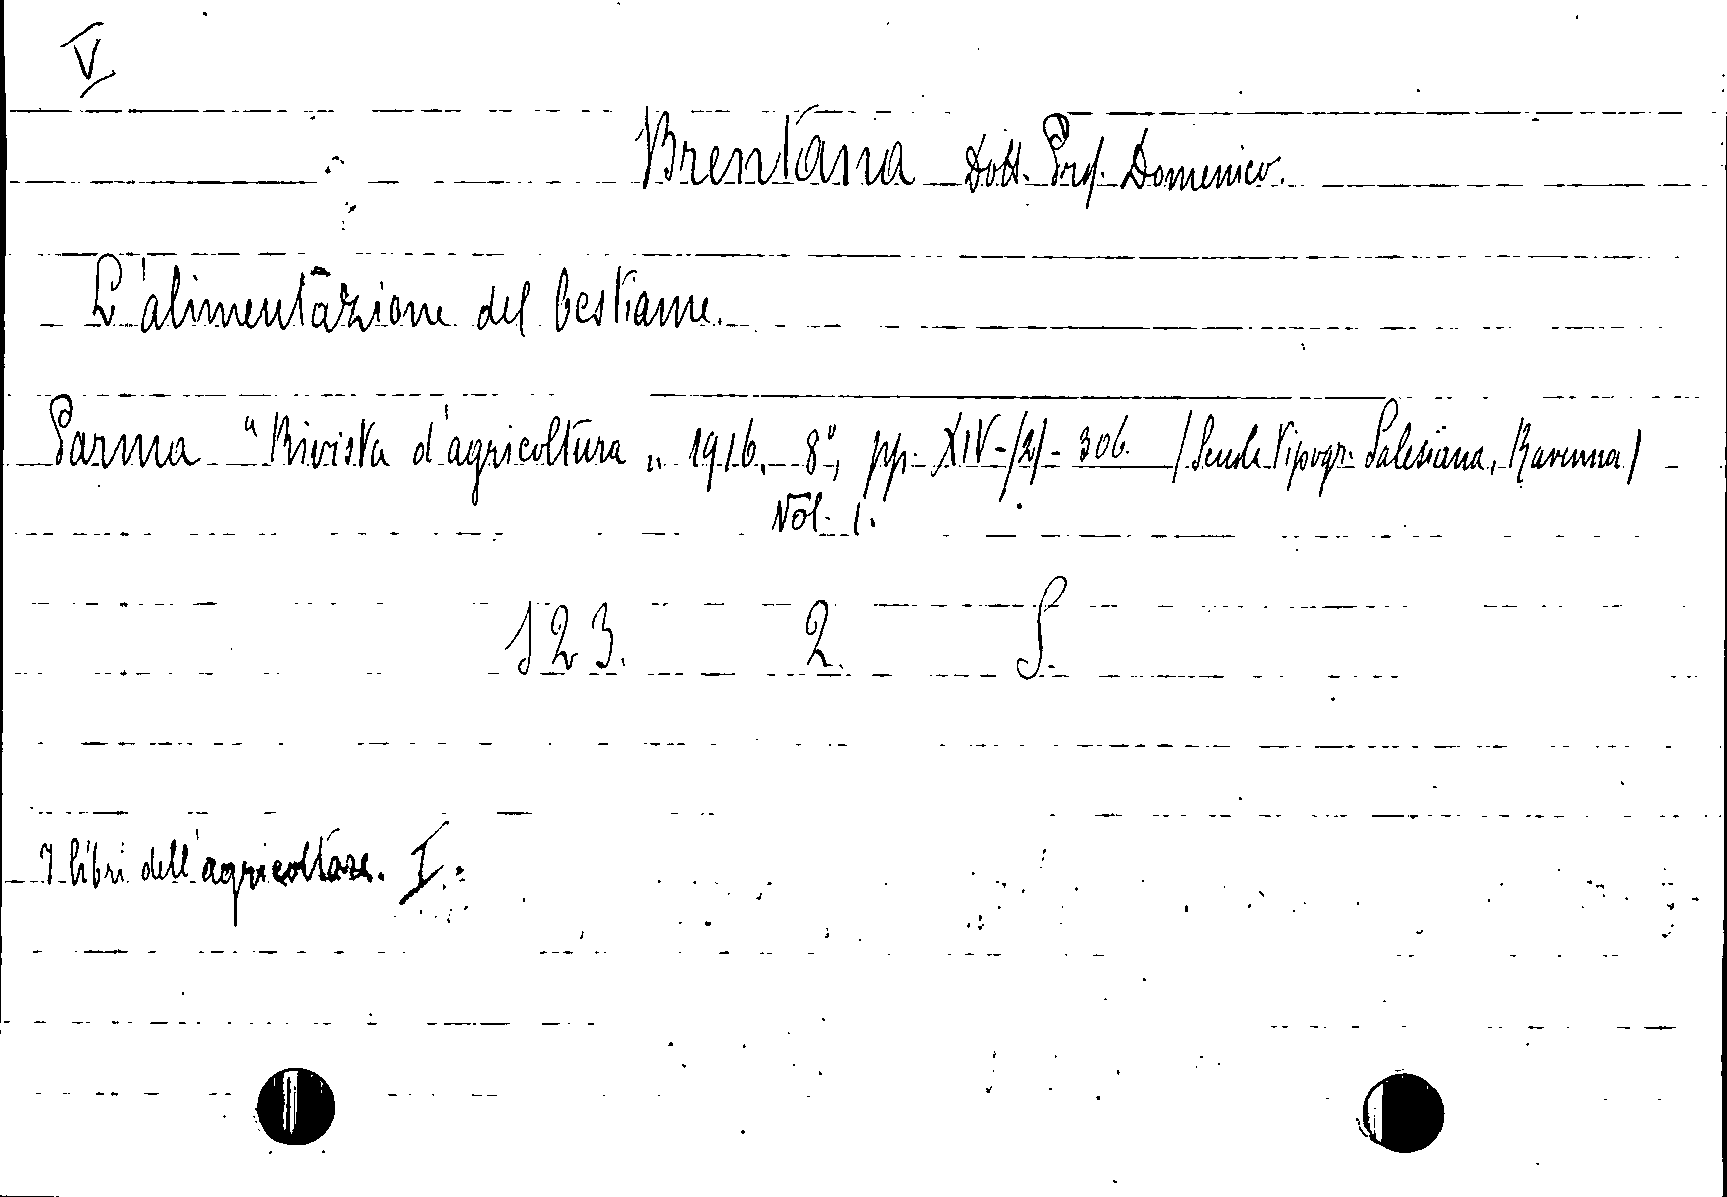 V
Brentana Dott. Prof. Domenico.
L'alimentazione del bestiame.
Parma "Rivista d'agricoltura" 1916. 8°, pp. XIV-/2/-306. /Scuola Tipogr. Salesiana, Ravenna/
Vol. I.
123. 2. S.
I libri dell'agricoltore. I.